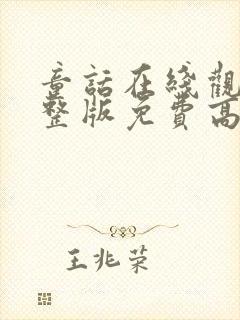 童話在綫觀
整版免費高
王兆荣